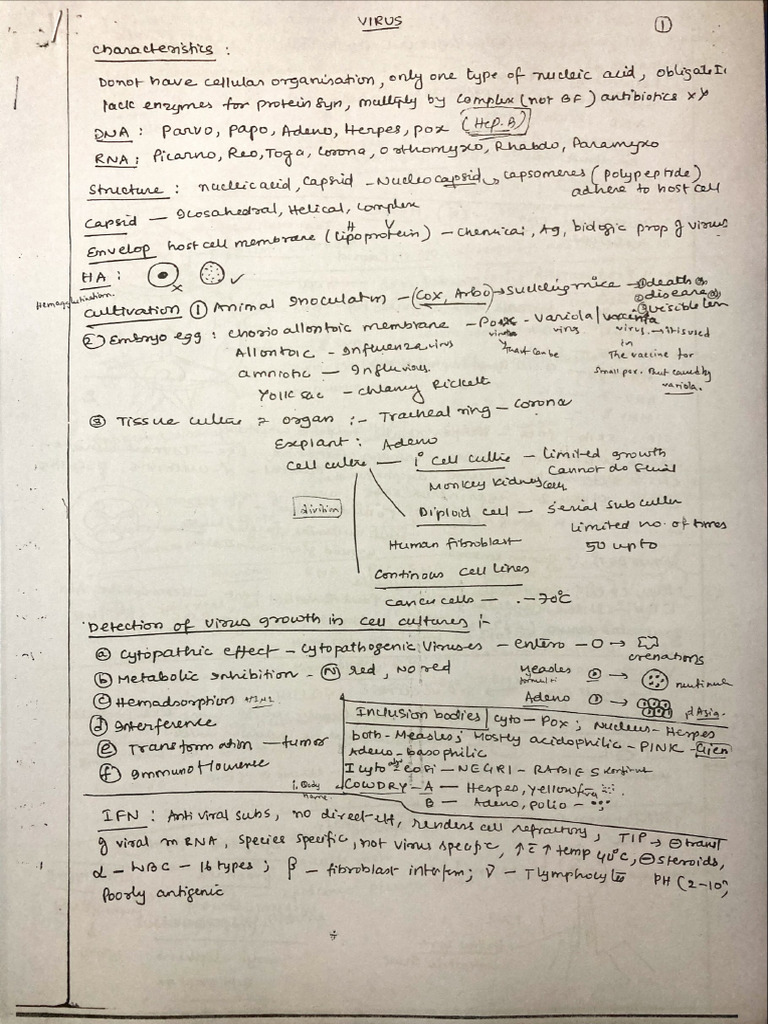 VIRUS
1
Characteristics :
Donot have cellular organisation, only one type of nucleic acid, obligate Ic
lack enzymes for protein syn, multiply by complex (not BF) antibiotics x
DNA : Parvo, Papo, Adeno, Herpes, Pox (Hep.B)
RNA : Picarno, Reo, Toga, Corona, Orthomyxo, Rhabdo, Paramyxo
Structure : nucleic acid, capsid - Nucleocapsid capsomeres (polypeptide)
adhere to host cell
Capsid — Icosahedral, Helical, Complex
Envelop host cell membrane (lipoprotein) — chemical, Ag, biologic prop of virus
H V
HA : x ✓
Hemagglutination.
Cultivation ① Animal Inoculatn — (Cox, Arbo) → suckling mice → ① death
② disease
③ visible lesn
② Embryo egg : chorio allontoic membrane — Pox - Variola / vaccinia
virus virus virus → it is used
Allontoic - Influenza virus
That can be in
The vaccine for
amniotic — Influ virus.
small pox. But caused by
Yolk sac — chlamy Rickett
variola.
③ Tissue culture organ :- Tracheal ring — Corona
Explant : Adeno
Cell culture — 1° cell cultre — limited growth
Cannot do serial
Monkey kidney cells
division
Diploid cell — serial sub cultur
limited no. of times
Human fibroblast 50 upto
Continous cell lines
cancer cells — -70°C
Detection of virus growth in cell cultures :-
ⓐ Cytopathic effect — Cytopathogenic viruses — entero — O →
crenations
ⓑ Metabolic Inhibition - Ⓝ red, no red
measles → multinucle
ⓒ Hemadsorption
Adeno →
ⓓ Interference
ⓔ Transformation — tumor
ⓕ Immunoflouresce
Inclusion bodies | cyto — Pox ; Nucleus — Herpes
both - Measles ; Mostly acidophilic - PINK - Giem
Adeno - basophilic
I cyto eosi - NEGRI - RABIES
I. Body name.
COWDRY - A — Herpes, yellow
B — Adeno, polio -
IFN : Anti viral subs, no direct eff, renders cell refractory, TIP → ⊖ transl
of viral mRNA, species specific, not virus specific, ↑ c̄ ↑ temp 40°C, ⊖ steroids,
α — WBC — 16 types ; β — fibroblast interfern ; γ — T lymphocytes PH (2-10)
Poorly antigenic